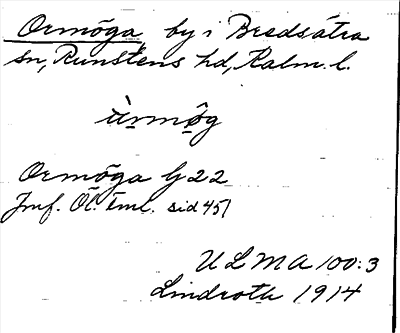 Ormöga by i Bredsätra
sn, Runstens hd, Kalm. l.
ùrmộg
Ormöga G 22
Jmf. Öl. sid 45)
ULMA 100:3
Lindroth 1914